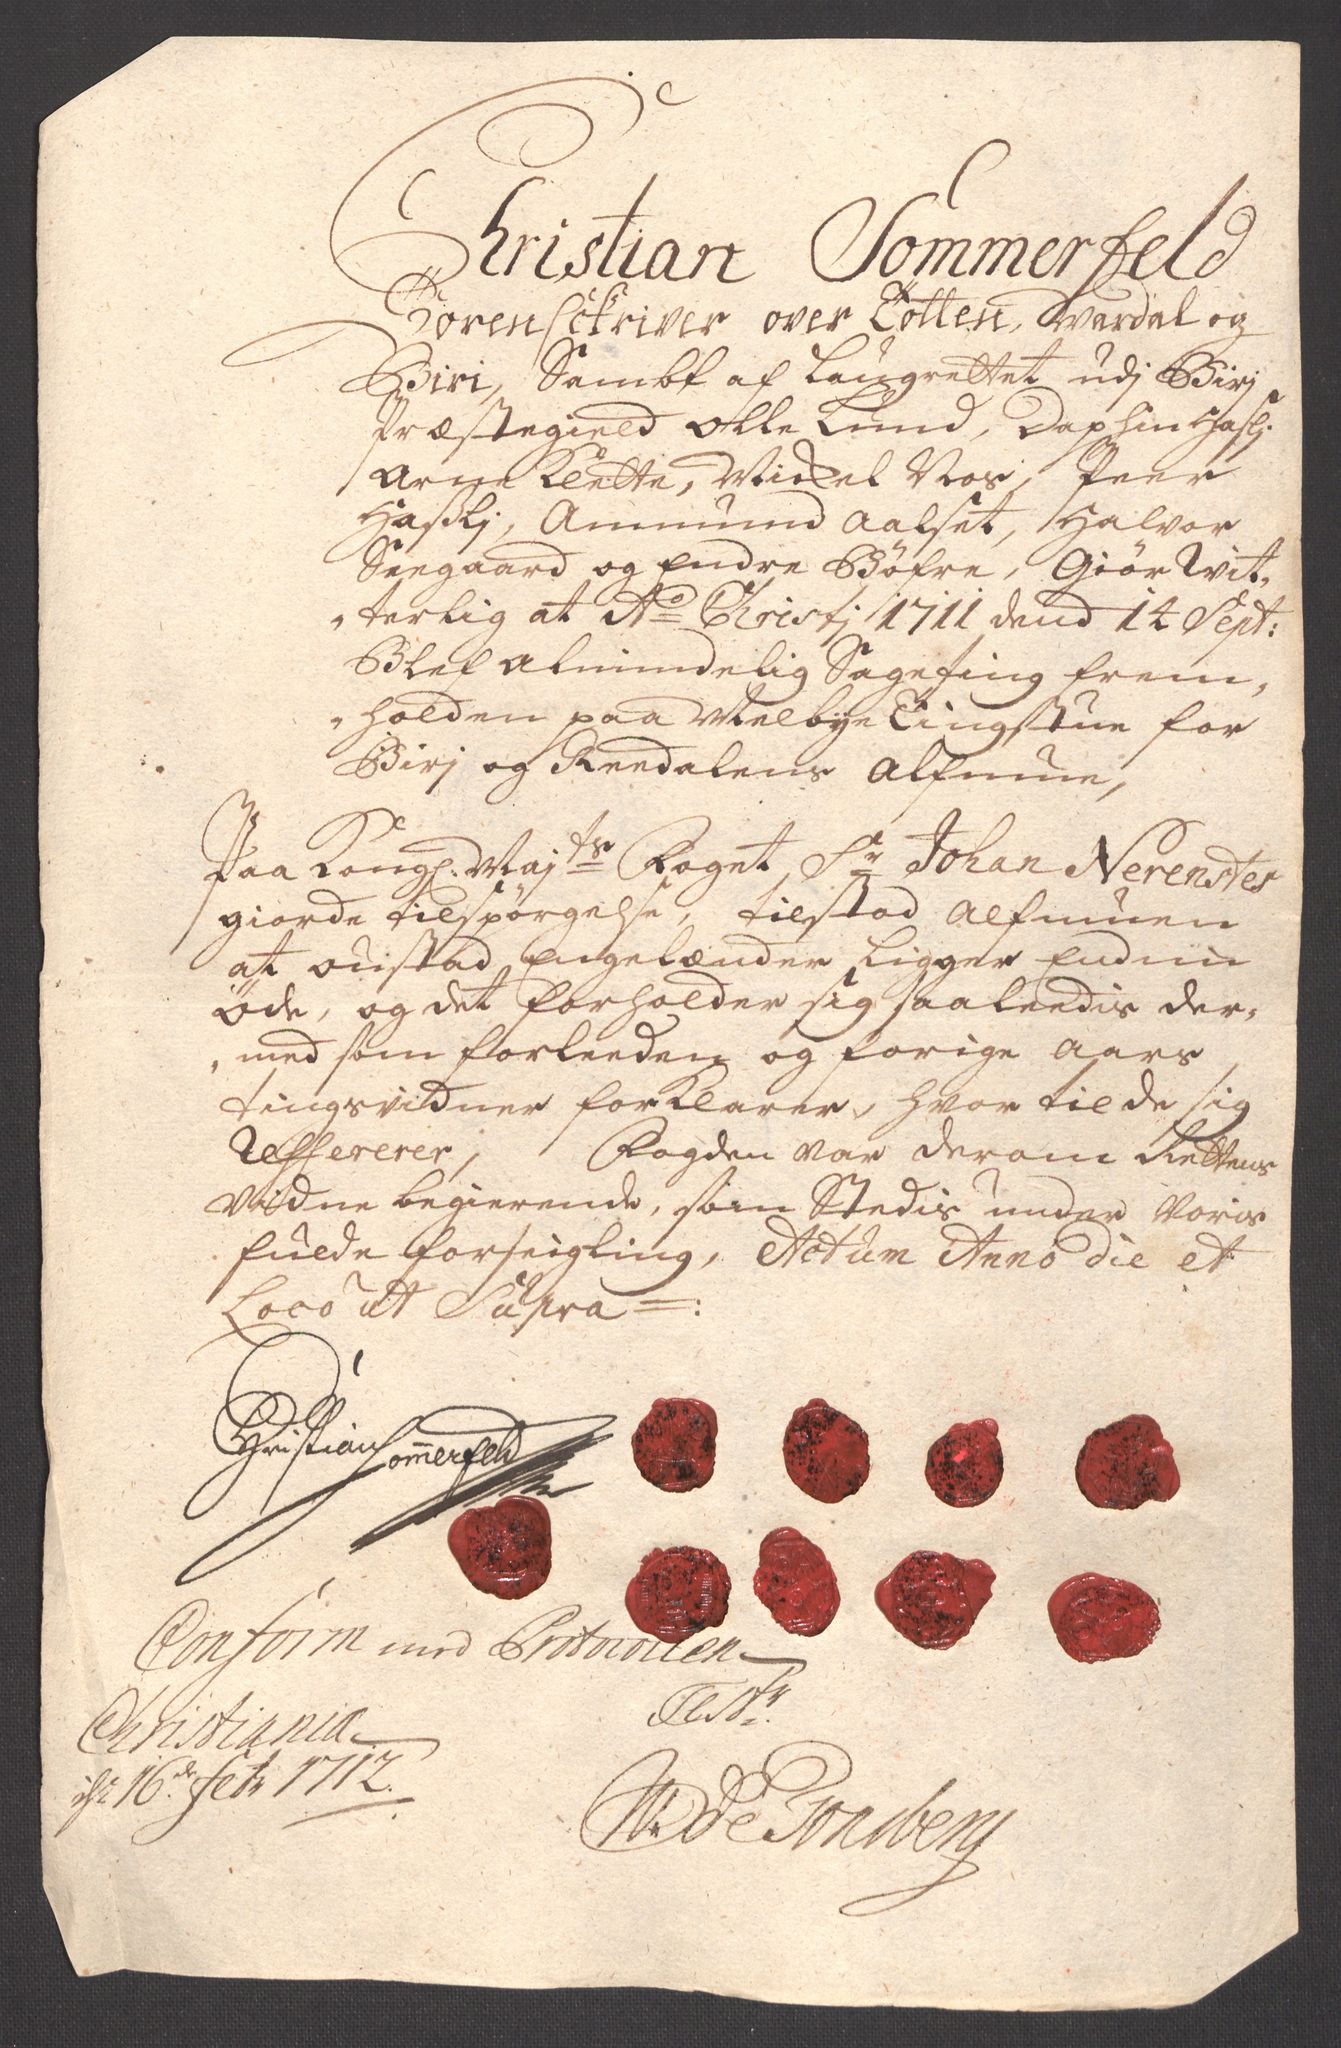 Christian Sommerfeld
Sorenschriver over Totten, Wardal og
Biri, Sambt af Laugrettet udj Birj
Præstegield Olle Lund, Daphin Haslj.
Arne Klette, Mickel Nos, Peer
Hasslj, Ammund Aalset, Halvor
Seegaard og Endre Böfre, Giör Wit,
,terlig at Ao Christj 1711 dend 14 Sept:
Blef Almindelig Sageting frem,
,holden paa Melbye Tingstue for
Birj og Reedalens Alfmue,
Paa Kongl: Maj:ts Foget, Sr Johan Nerenster
giorde tilspörgelse, tilstod Alfmuen
at Oustad Engelænder Ligger Endnu
Öde, og det forholder sig saaleedis der,
,med som forleeden og forige Aars
tingsvidner forklarer, hvor til de sig
Refererer, Fogden var derom Rettens
vidne begierende, som Stedis under Voris
fulde forseigling, Actum Anno die et
Loco ut Supra =:
Christian Sommerfeld
Conform med Protocollen
Test:r
Christiania
16de febr 1712.
de Tonsberg